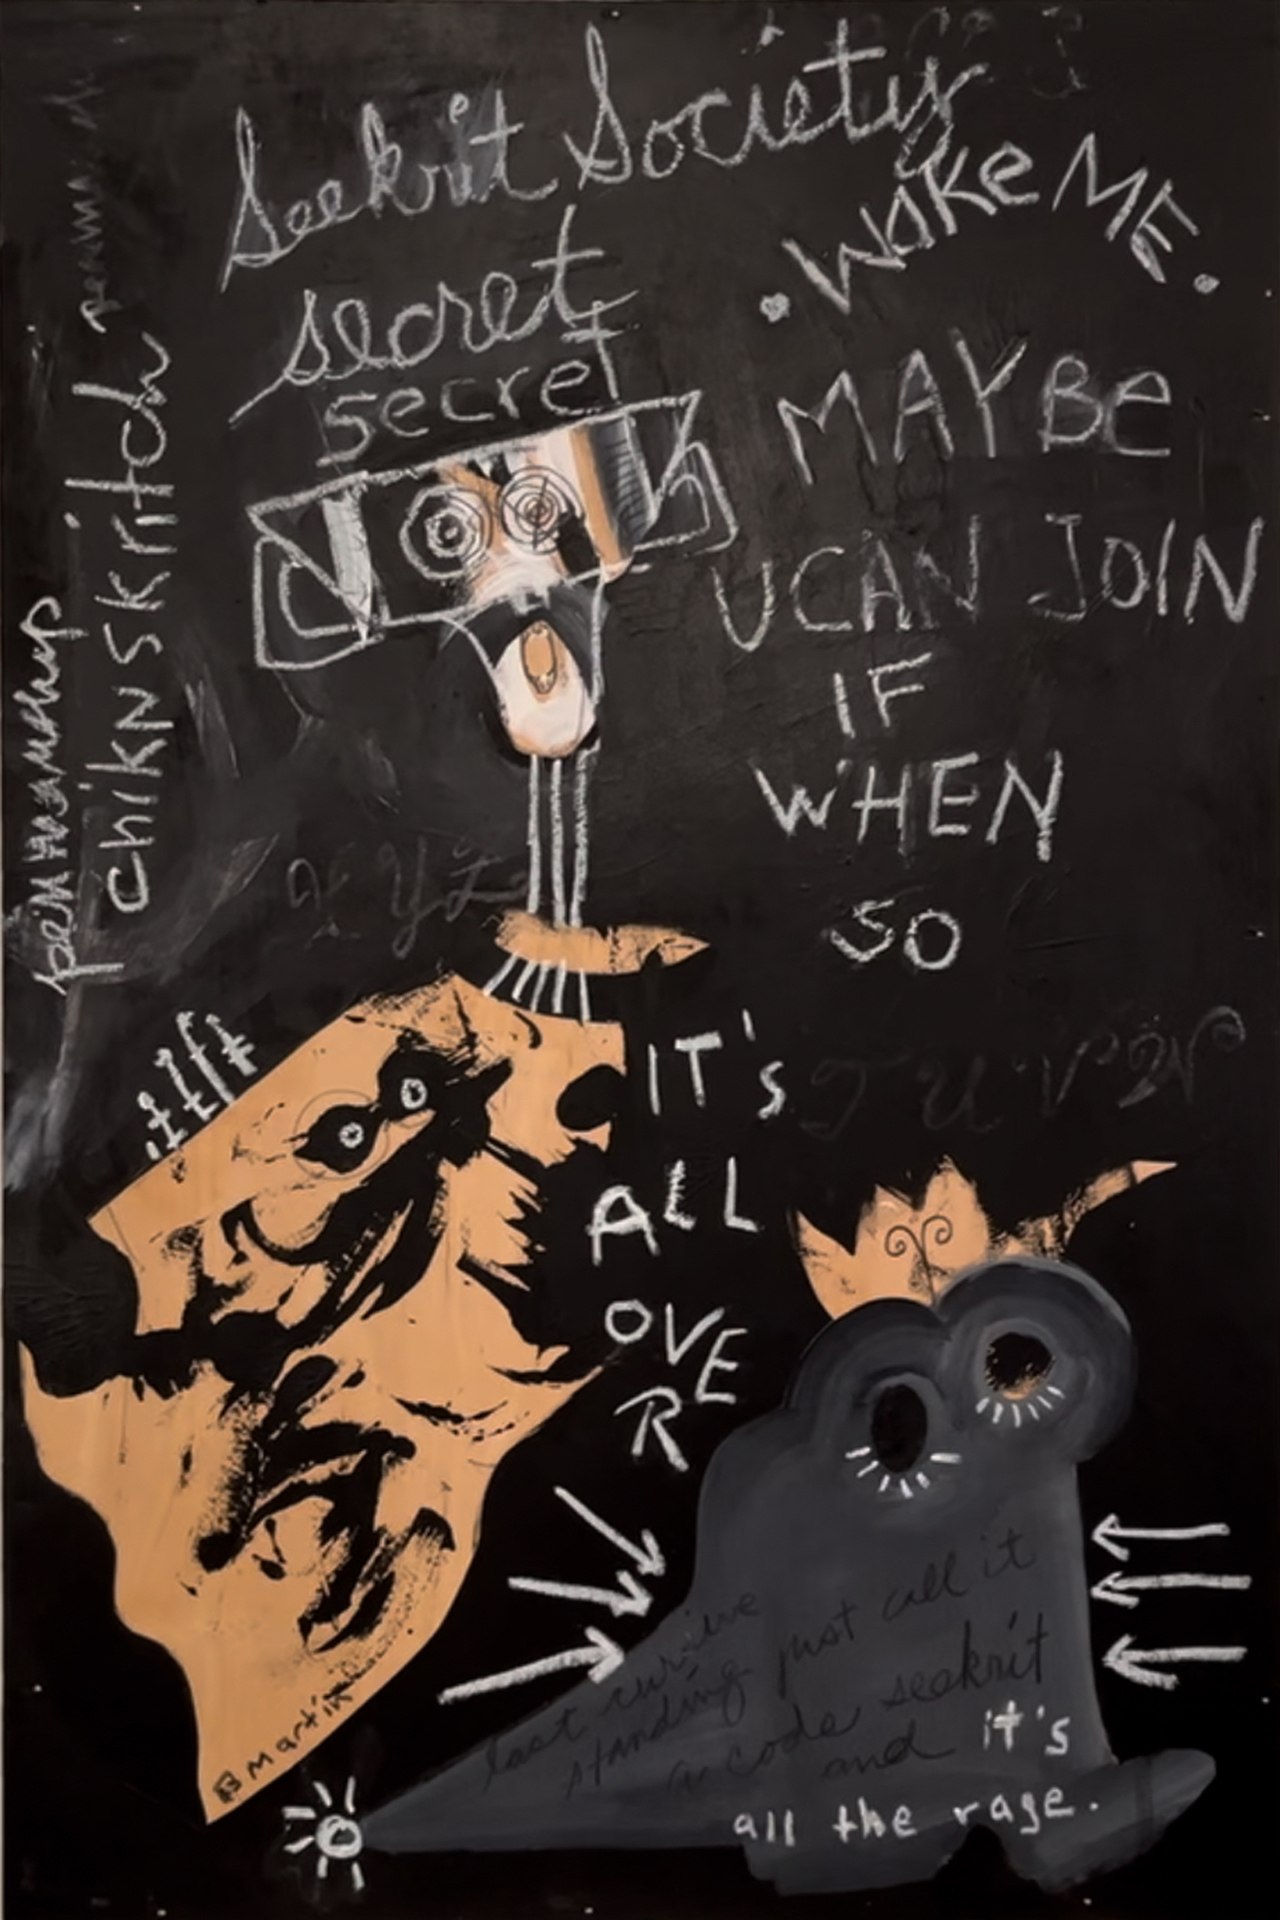 Seekrit Society
secret
secret
• Woke ME •
MAYBe
UCAN JOIN
IF
WHEN
SO
penmanship
chiknskritch
X Y Z
T U V W
IT's
ALL
OVE
R
last cursive
standing just call it
a code seekrit
and it's
all the rage.
B Martin